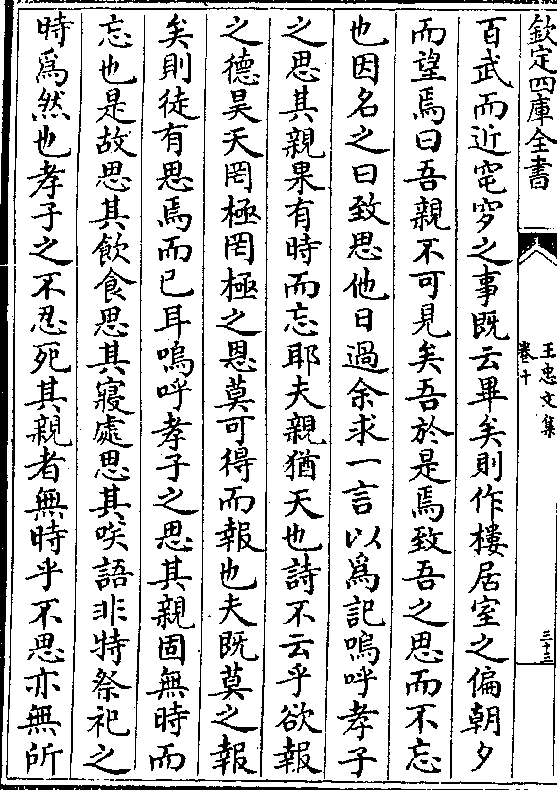 欽定四庫全書
王忠文集
卷十
三十三
百武而近窀穸之事既云畢矣則作樓居室之偏朝夕
而望焉曰吾親不可見矣吾於是焉致吾之思而不忘
也因名之曰致思他日過余求一言以為記嗚呼孝子
之思其親果有時而忘耶夫親猶天也詩不云乎欲報
之德昊天罔極罔極之恩莫可得而報也夫既莫之報
矣則徒有思焉而已耳嗚呼孝子之思其親固無時而
忘也是故思其飲食思其寢處思其咲語非特祭祀之
時為然也孝子之不忍死其親者無時乎不思亦無所